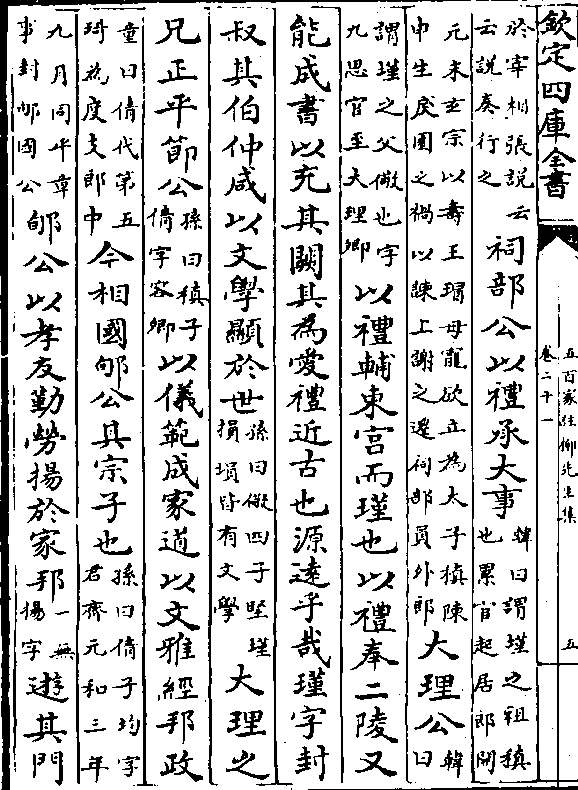 欽定四庫全書
五百家註柳先生集
卷二十一
五
於宰相張説云云説奏行之祠部公以禮承大事韓曰謂瑾之祖稹也累官起居郎開
元末玄宗以壽王瑁母寵欲立為太子稹陳申生戾園之禍以諫上謝之遷祠部員外郎大理公韓曰
謂瑾之父儆也字九思官至大理卿以禮輔東宫而瑾也以禮奉二陵又
能成書以充其闕其為愛禮近古也源逺乎哉瑾字封
叔其伯仲咸以文學顯於世孫曰儆四子堅瑾損塤皆有文學大理之
兄正平節公孫曰稹子倩字容卿以儀範成家道以文雅經邦政
童曰倩代第五琦為度支郎中今相國郇公其宗子也孫曰倩子均字君齊元和三年
九月同平章事封郇國公郇公以孝友勤勞揚於家邦一無揚字遊其門